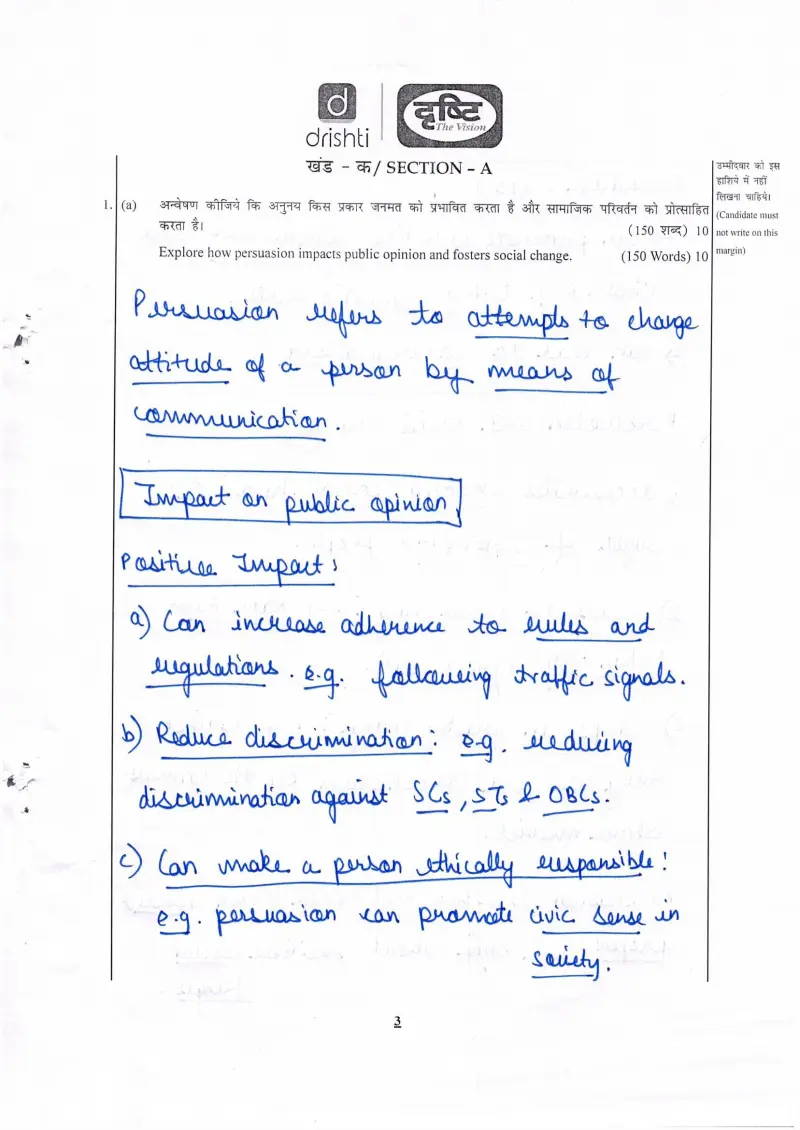 d
drishti
दृष्टि
The Vision
खंड - क/ SECTION – A
उम्मीदवार को इस
हाशिये में नहीं
लिखना चाहिये।
(Candidate must
not write on this
margin)
1. (a) अन्वेषण कीजिये कि अनुनय किस प्रकार जनमत को प्रभावित करता है और सामाजिक परिवर्तन को प्रोत्साहित
करता है।
(150 शब्द) 10
Explore how persuasion impacts public opinion and fosters social change. (150 Words) 10
Persuasion refers to attempts to change
attitude of a person by means of
communication.
Impact on public opinion
Positive Impact :
a) Can increase adherence to rules and
regulations. e.g. following traffic signals.
b) Reduce discrimination : e.g. reducing
discrimination against SCs, STs & OBCs.
c) Can make a person ethically responsible :
e.g. persuasion can promote civic sense in
society.
3